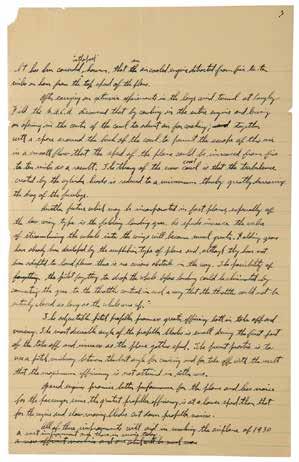 3
in the past
It has been conceded, however, that the air cooled engine detracted from five to ten
miles an hour from the top speed of the plane.
After carrying on extensive experiments in the large wind tunnel at Langley
Field the N.A.C.A. discovered that by cowling in the entire engine and leaving
an opening in the center of the cowl to admit air for cooling, together
with a space around the back of the cowl to permit the escape of this air
in a smooth flow, that the speed of the plane could be increased from five
to ten miles as a result. The theory of the new cowl is that the turbulence
created by the cylinder heads is reduced to a minimum thereby greatly decreasing
the drag of the fuselage.
Another feature which may be incorporated in fast planes, especially of
the low wing type is the folding landing gear. As speeds increase the value
of streamlining the wheels into the wing will become much greater. Folding gears
have already been developed by the amphibian type of plane and, although they have not
been adapted to land planes there is no serious obstacle in the way. The possibility of
the pilot forgetting to drop the wheels before landing could be eliminated by
connecting the gear to the throttle control in such a way that the throttle could not be
entirely closed as long as the wheels were up.
The adjustable pitch propeller promises greater efficiency both in take off and
cruising. The most desirable angle of the propeller blades is small during the first part
of the take off and increases as the plane gathers speed. The present practice is to
use a pitch midway between the best angle for cruising and for take off with the result
that the maximum efficiency is not attained in either case.
Geared engines promise better performance for the plane and less noise
for the passenger since the greatest propeller efficiency is at a lower speed than that
for the engine and slow moving blades cut down propeller noise.
All of these improvements will aid in making the airplane of 1930